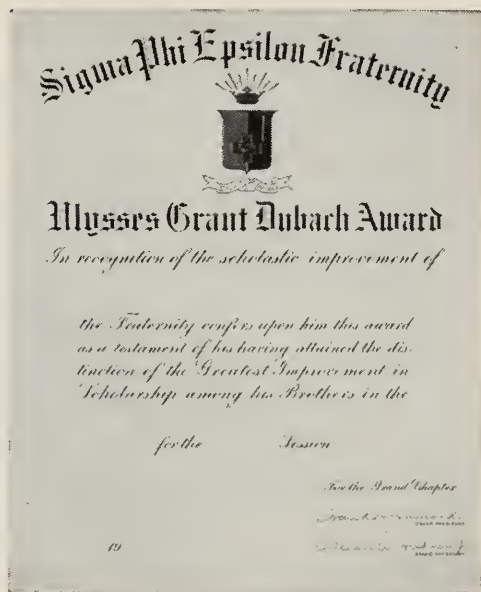 Sigma Phi Epsilon Fraternity
Ulysses Grant Dubach Award
In recognition of the scholastic improvement of
the Fraternity confers upon him this award
as a testament of his having attained the dis-
tinction of the Greatest Improvement in
Scholarship among his Brothers in the
for the Session
For the Grand Chapter
19